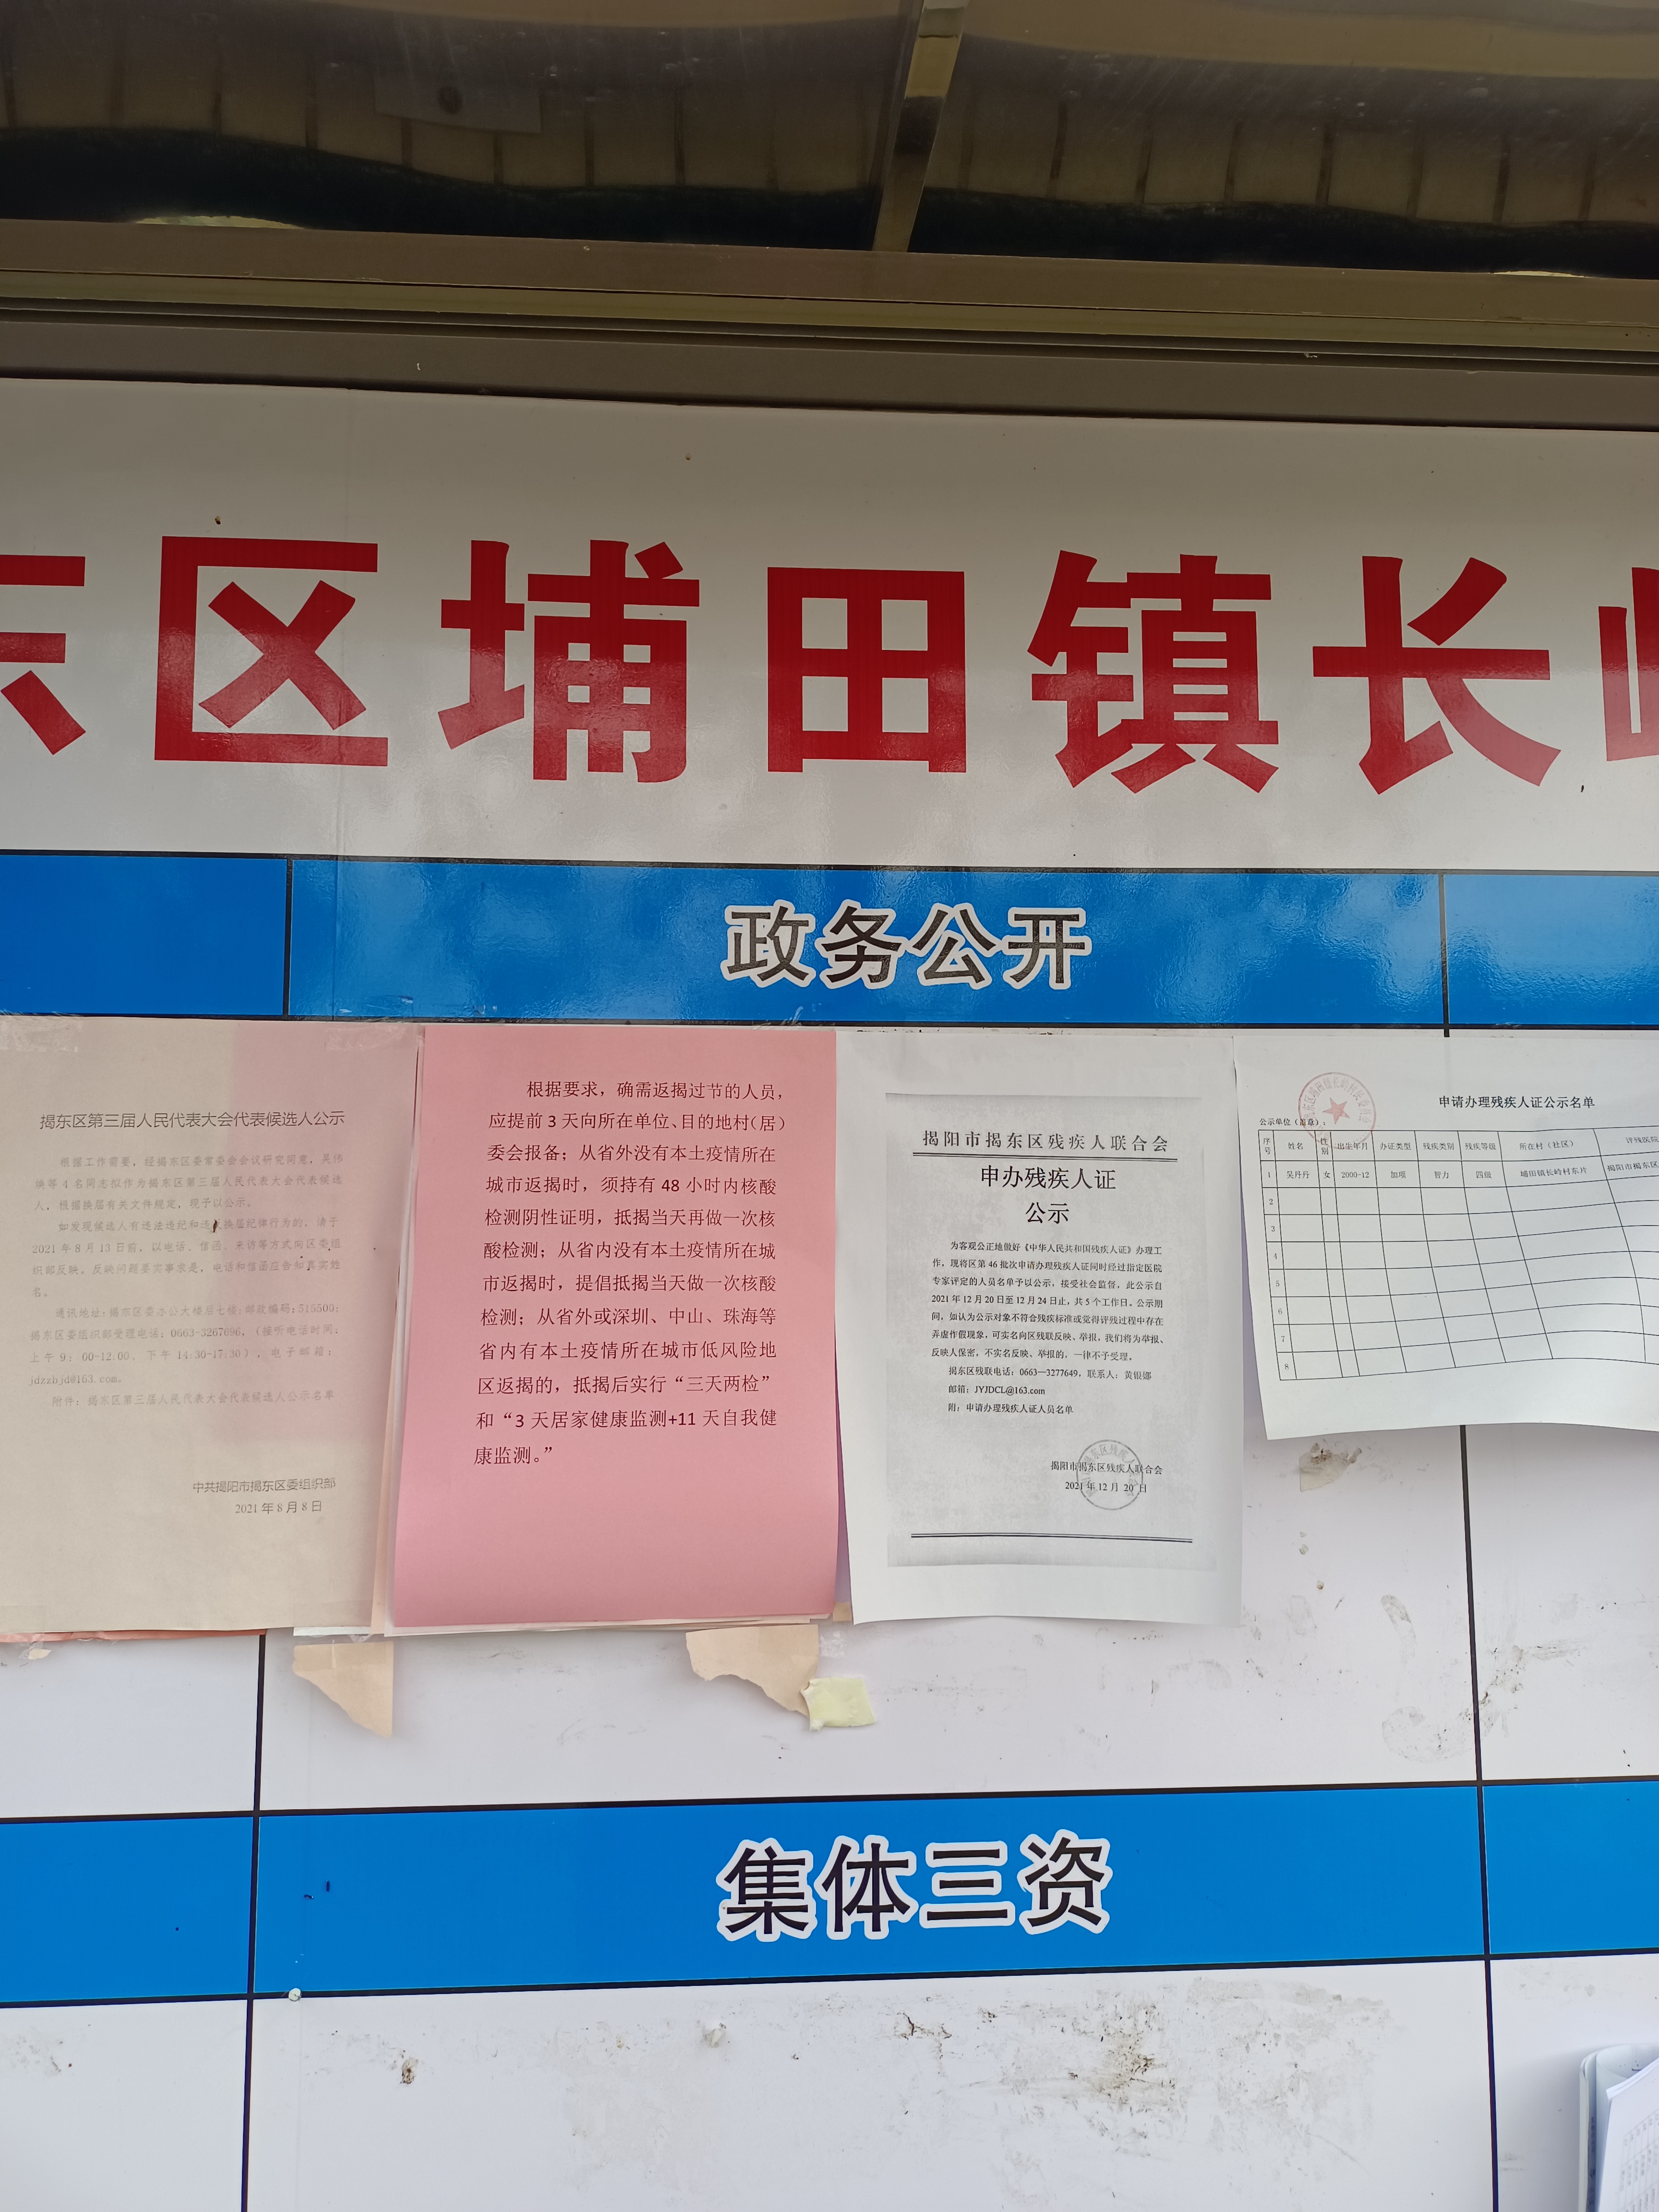 东区埔田镇长岭
政务公开
揭东区第三届人民代表大会代表候选人公示
根据工作需要，经揭东区委常委会会议研究同意，吴伟
焕等4名同志拟作为揭东区第三届人民代表大会代表候选
人，根据换届有关文件规定，现予以公示。
如发现候选人有违法违纪和违反换届纪律行为的，请于
2021年8月13日前，以电话、信函、来访等方式向区委组
织部反映。反映问题要实事求是，电话和信函应告知真实姓
名。
通讯地址：揭东区委办公大楼后七楼；邮政编码：515500；
揭东区委组织部受理电话：0663-3267696，（接听电话时间：
上午9：00-12.00，下午14:30-17:30），电子邮箱：
jdzzbjd@163.com。
附件：揭东区第三届人民代表大会代表候选人公示名单
中共揭阳市揭东区委组织部
2021年8月8日
根据要求，确需返揭过节的人员，
应提前3天向所在单位、目的地村（居）
委会报备；从省外没有本土疫情所在
城市返揭时，须持有48小时内核酸
检测阴性证明，抵揭当天再做一次核
酸检测；从省内没有本土疫情所在城
市返揭时，提倡抵揭当天做一次核酸
检测；从省外或深圳、中山、珠海等
省内有本土疫情所在城市低风险地
区返揭的，抵揭后实行“三天两检”
和“3天居家健康监测+11天自我健
康监测。”
揭阳市揭东区残疾人联合会
申办残疾人证
公示
为客观公正地做好《中华人民共和国残疾人证》办理工
作，现将区第46批次申请办理残疾人证同时经过指定医院
专家评定的人员名单予以公示，接受社会监督，此公示自
2021年12月20日至12月24日止，共5个工作日。公示期
间，如认为公示对象不符合残疾标准或觉得评残过程中存在
弄虚作假现象，可实名向区残联反映、举报，我们将为举报、
反映人保密，不实名反映、举报的，一律不予受理。
揭东区残联电话：0663—3277649，联系人：黄银娜
邮箱：JYJDCL@163.com
附：申请办理残疾人证人员名单
揭阳市揭东区残疾人联合会
2021年12月20日
申请办理残疾人证公示名单
公示单位（盖章）：
序号 姓名 性别 出生年月 办证类型 残疾类别 残疾等级 所在村（社区） 评残医院
1 吴丹丹 女 2000-12 加项 智力 四级 埔田镇长岭村东片 揭阳市揭东区
2
3
4
5
6
7
8
集体三资